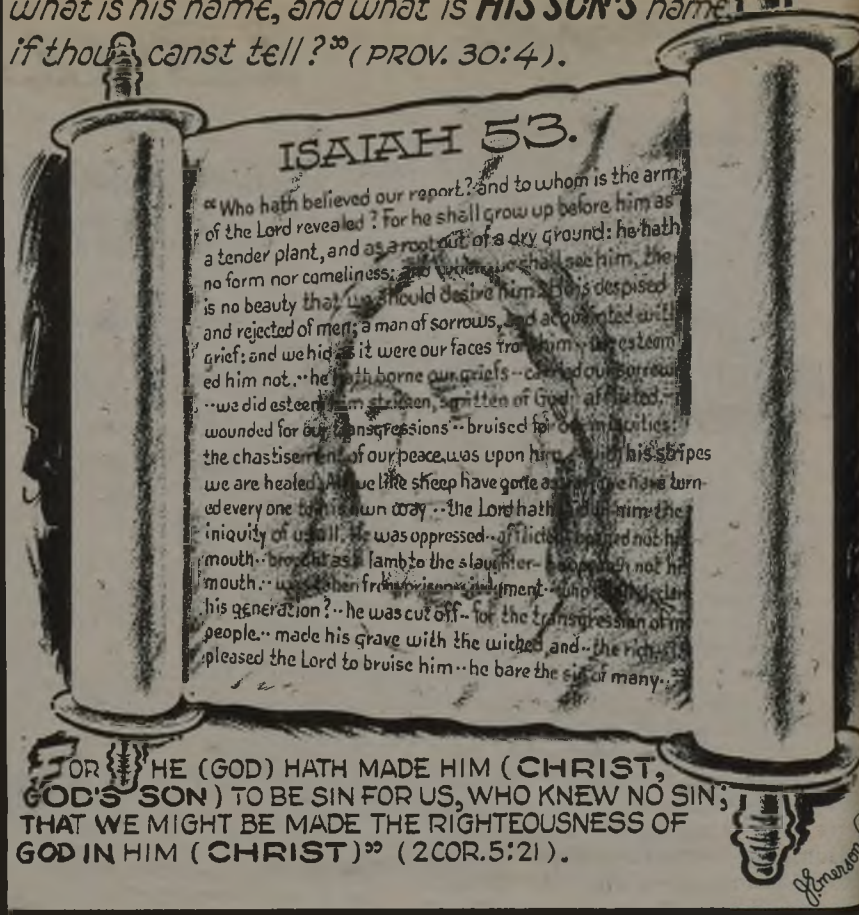 what is his name, and what is HIS SON'S name,
if thou canst tell?" (PROV. 30:4).
ISAIAH 53.
"Who hath believed our report? and to whom is the arm
of the Lord revealed? For he shall grow up before him as
a tender plant, and as a root out of a dry ground: he hath
no form nor comeliness; and when we shall see him, the
is no beauty that we should desire him. He is despised
and rejected of men; a man of sorrows, and acquainted with
grief: and we hid as it were our faces from him esteem
ed him not.··he hath borne our griefs··carried our sorrow
··we did esteem him stricken, smitten of God afflicted.··
wounded for our transgressions··bruised for our iniquities:
the chastisement of our peace was upon him his stripes
we are healed. All we like sheep have gone astray we have turn-
ed every one to his own way··the Lord hath laid on him the
iniquity of us all. He was oppressed··afflicted opened not his
mouth··brought as a lamb to the slaughter- not his
mouth.·· was taken from judgment··who
his generation?··he was cut off··for the transgression of my
people.·· made his grave with the wicked, and··the rich
pleased the Lord to bruise him··he bare the sin of many..."
FOR HE (GOD) HATH MADE HIM (CHRIST,
GOD'S SON) TO BE SIN FOR US, WHO KNEW NO SIN;
THAT WE MIGHT BE MADE THE RIGHTEOUSNESS OF
GOD IN HIM (CHRIST)" (2COR.5:21).
J.Emerson